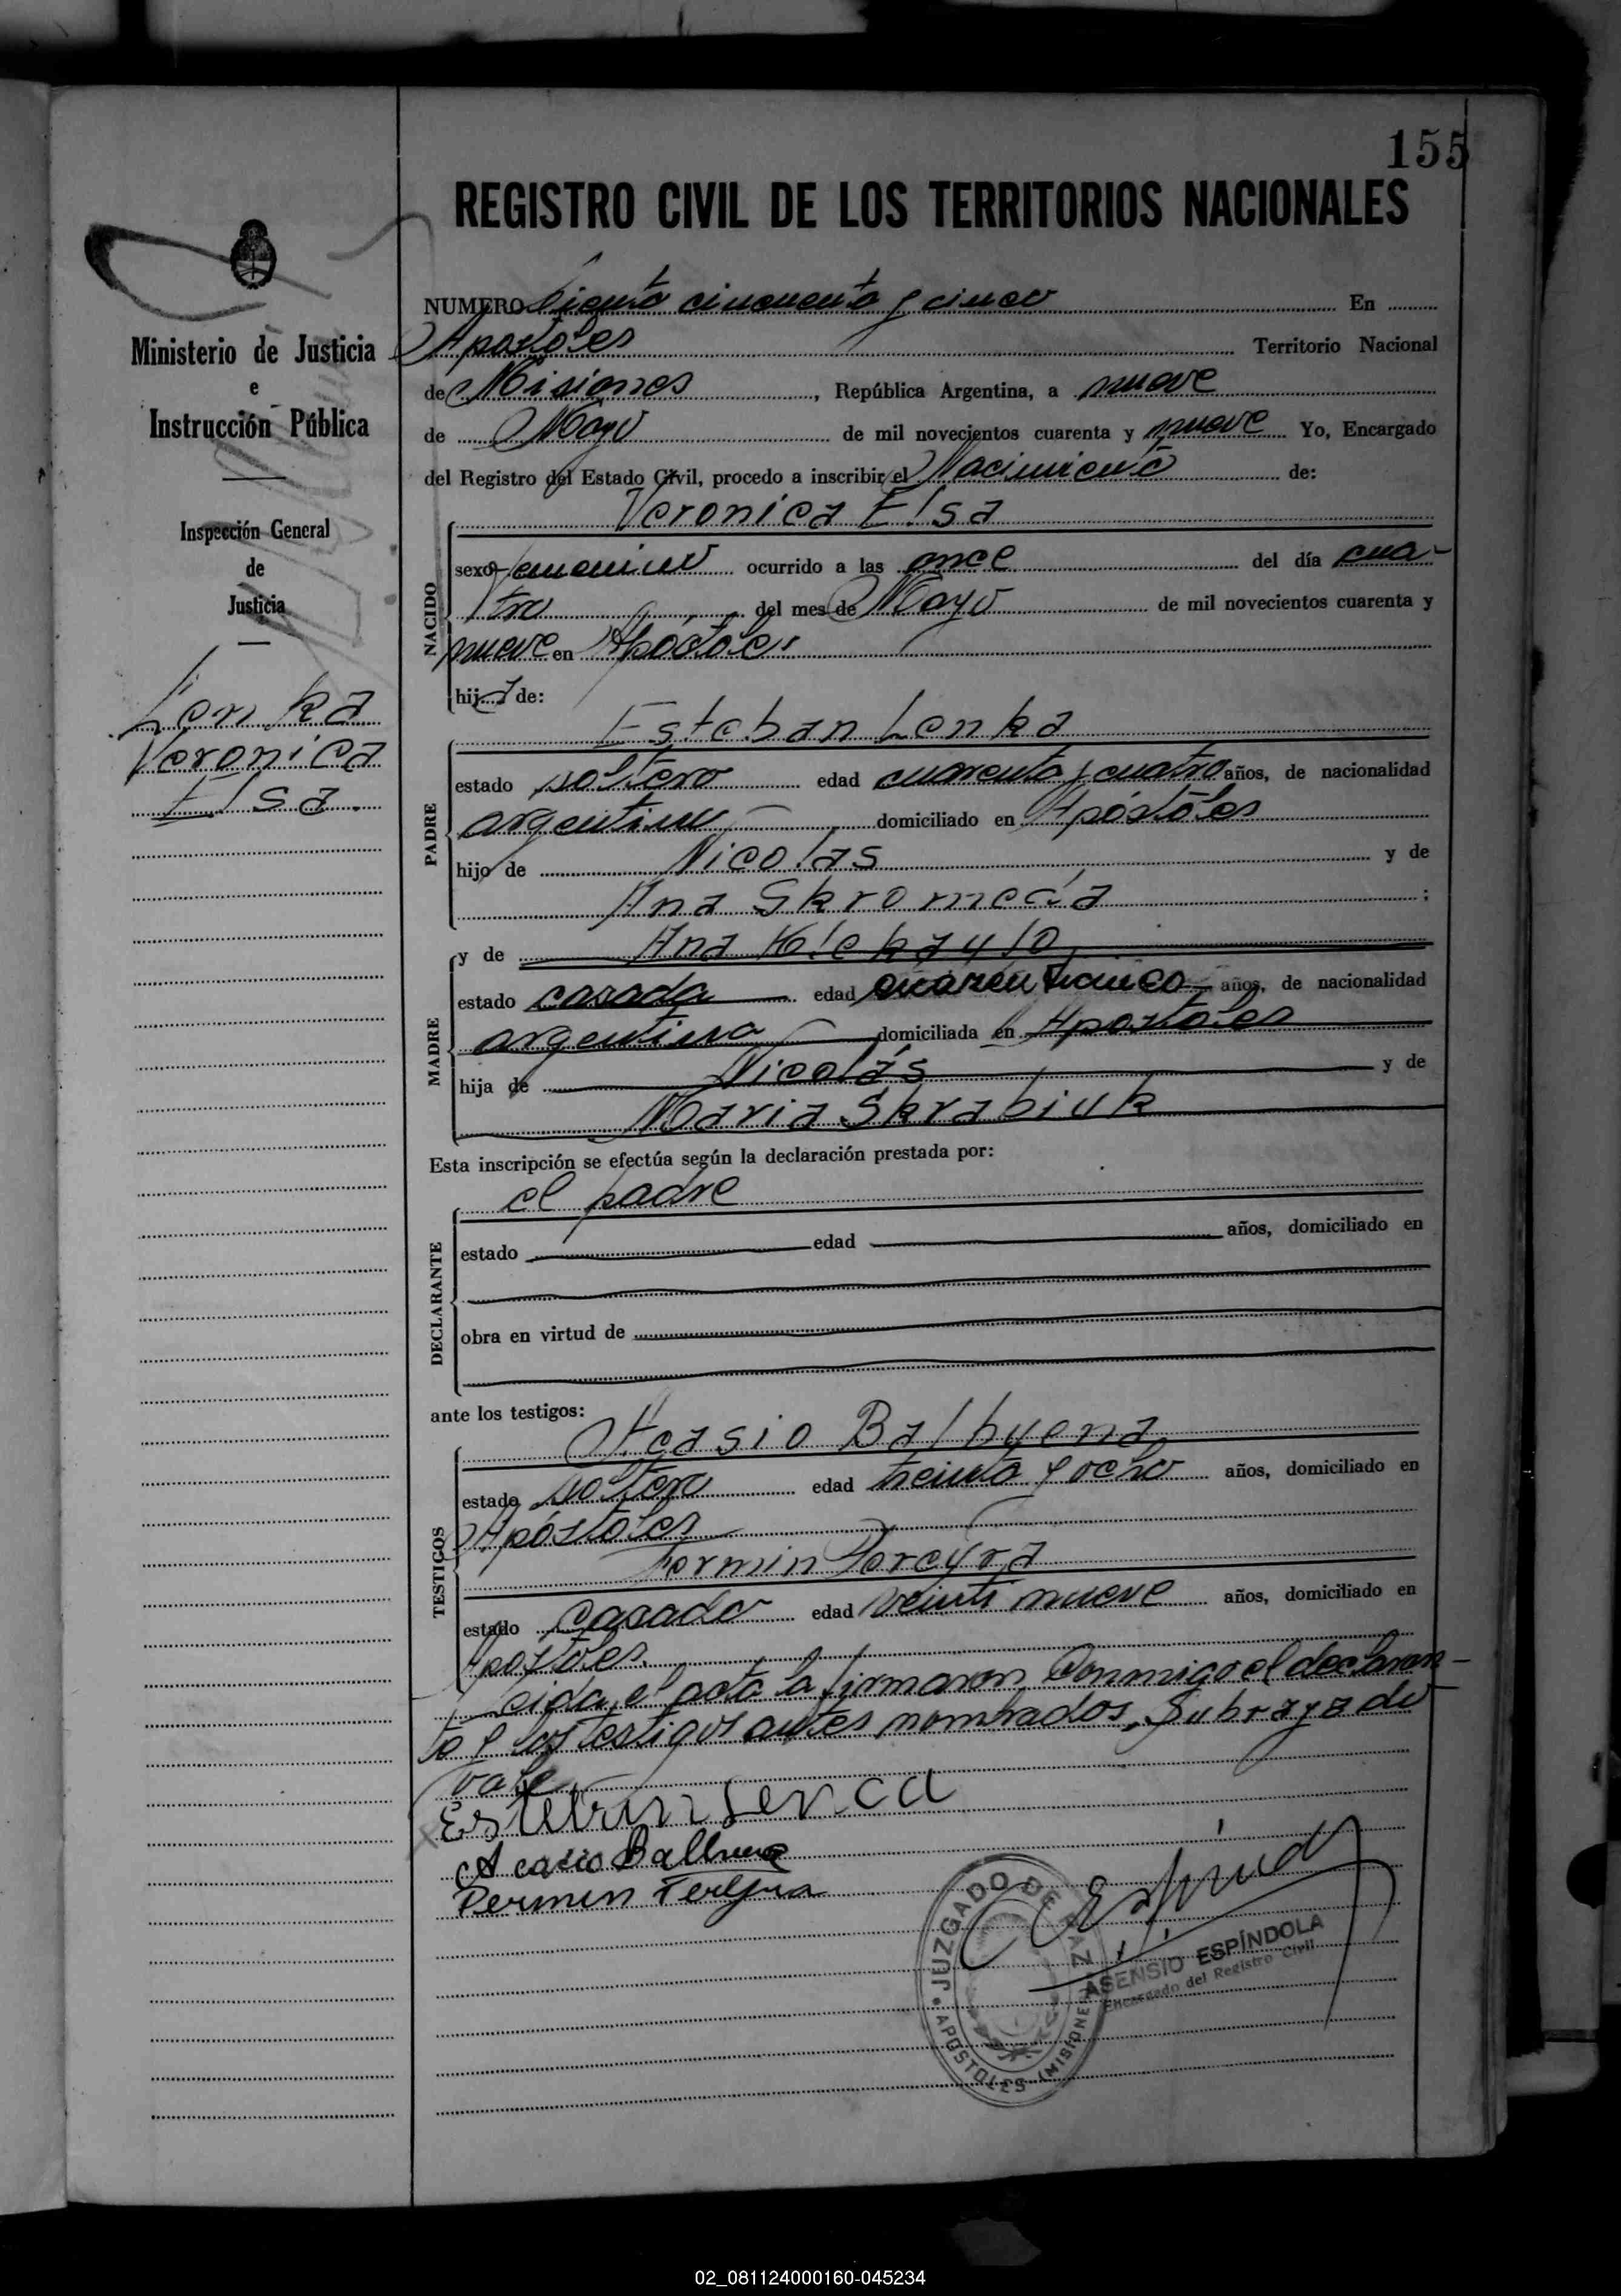 155
REGISTRO CIVIL DE LOS TERRITORIOS NACIONALES
Ministerio de Justicia
e
Instrucción Pública
Inspección General
de
Justicia
Lenka
Veronica
Elsa.
NUMERO Ciento cincuenta y cinco En
Apostoles Territorio Nacional
de Misiones, República Argentina, a nueve
de Mayo de mil novecientos cuarenta y nueve Yo, Encargado
del Registro del Estado Civil, procedo a inscribir el Nacimiento de:
Veronica Elsa
NACIDO
sexo femenino ocurrido a las once del día cua-
tro del mes de Mayo de mil novecientos cuarenta y
nueve en Apóstoles
hija de:
Esteban Lenka
PADRE
estado soltero edad cuarenta y cuatro años, de nacionalidad
argentino domiciliado en Apóstoles
hijo de Nicolas y de
Ana ;
MADRE
y de Ana
estado casada edad años, de nacionalidad
argentina domiciliada en Apostoles
hija de Nicolás y de
Maria Skrabiuk
Esta inscripción se efectúa según la declaración prestada por:
el padre
DECLARANTE
estado edad años, domiciliado en
obra en virtud de
ante los testigos:
Acasio Balbuena
TESTIGOS
estado soltero edad treinta y ocho años, domiciliado en
Apóstoles
Fermin Pereyra
estado casado edad veinti nueve años, domiciliado en
Apostoles.
Leida el acta la firmaron conmigo el declaran-
te y los testigos antes nombrados. Subrayado
vale
Esteban Lenca
Acasio Balbuena
Permin Fereyra
JUZGADO DE PAZ
APOSTOLES (MISIONES)
ASENSIO ESPÍNDOLA
Encargado del Registro Civil
02_081124000160-045234